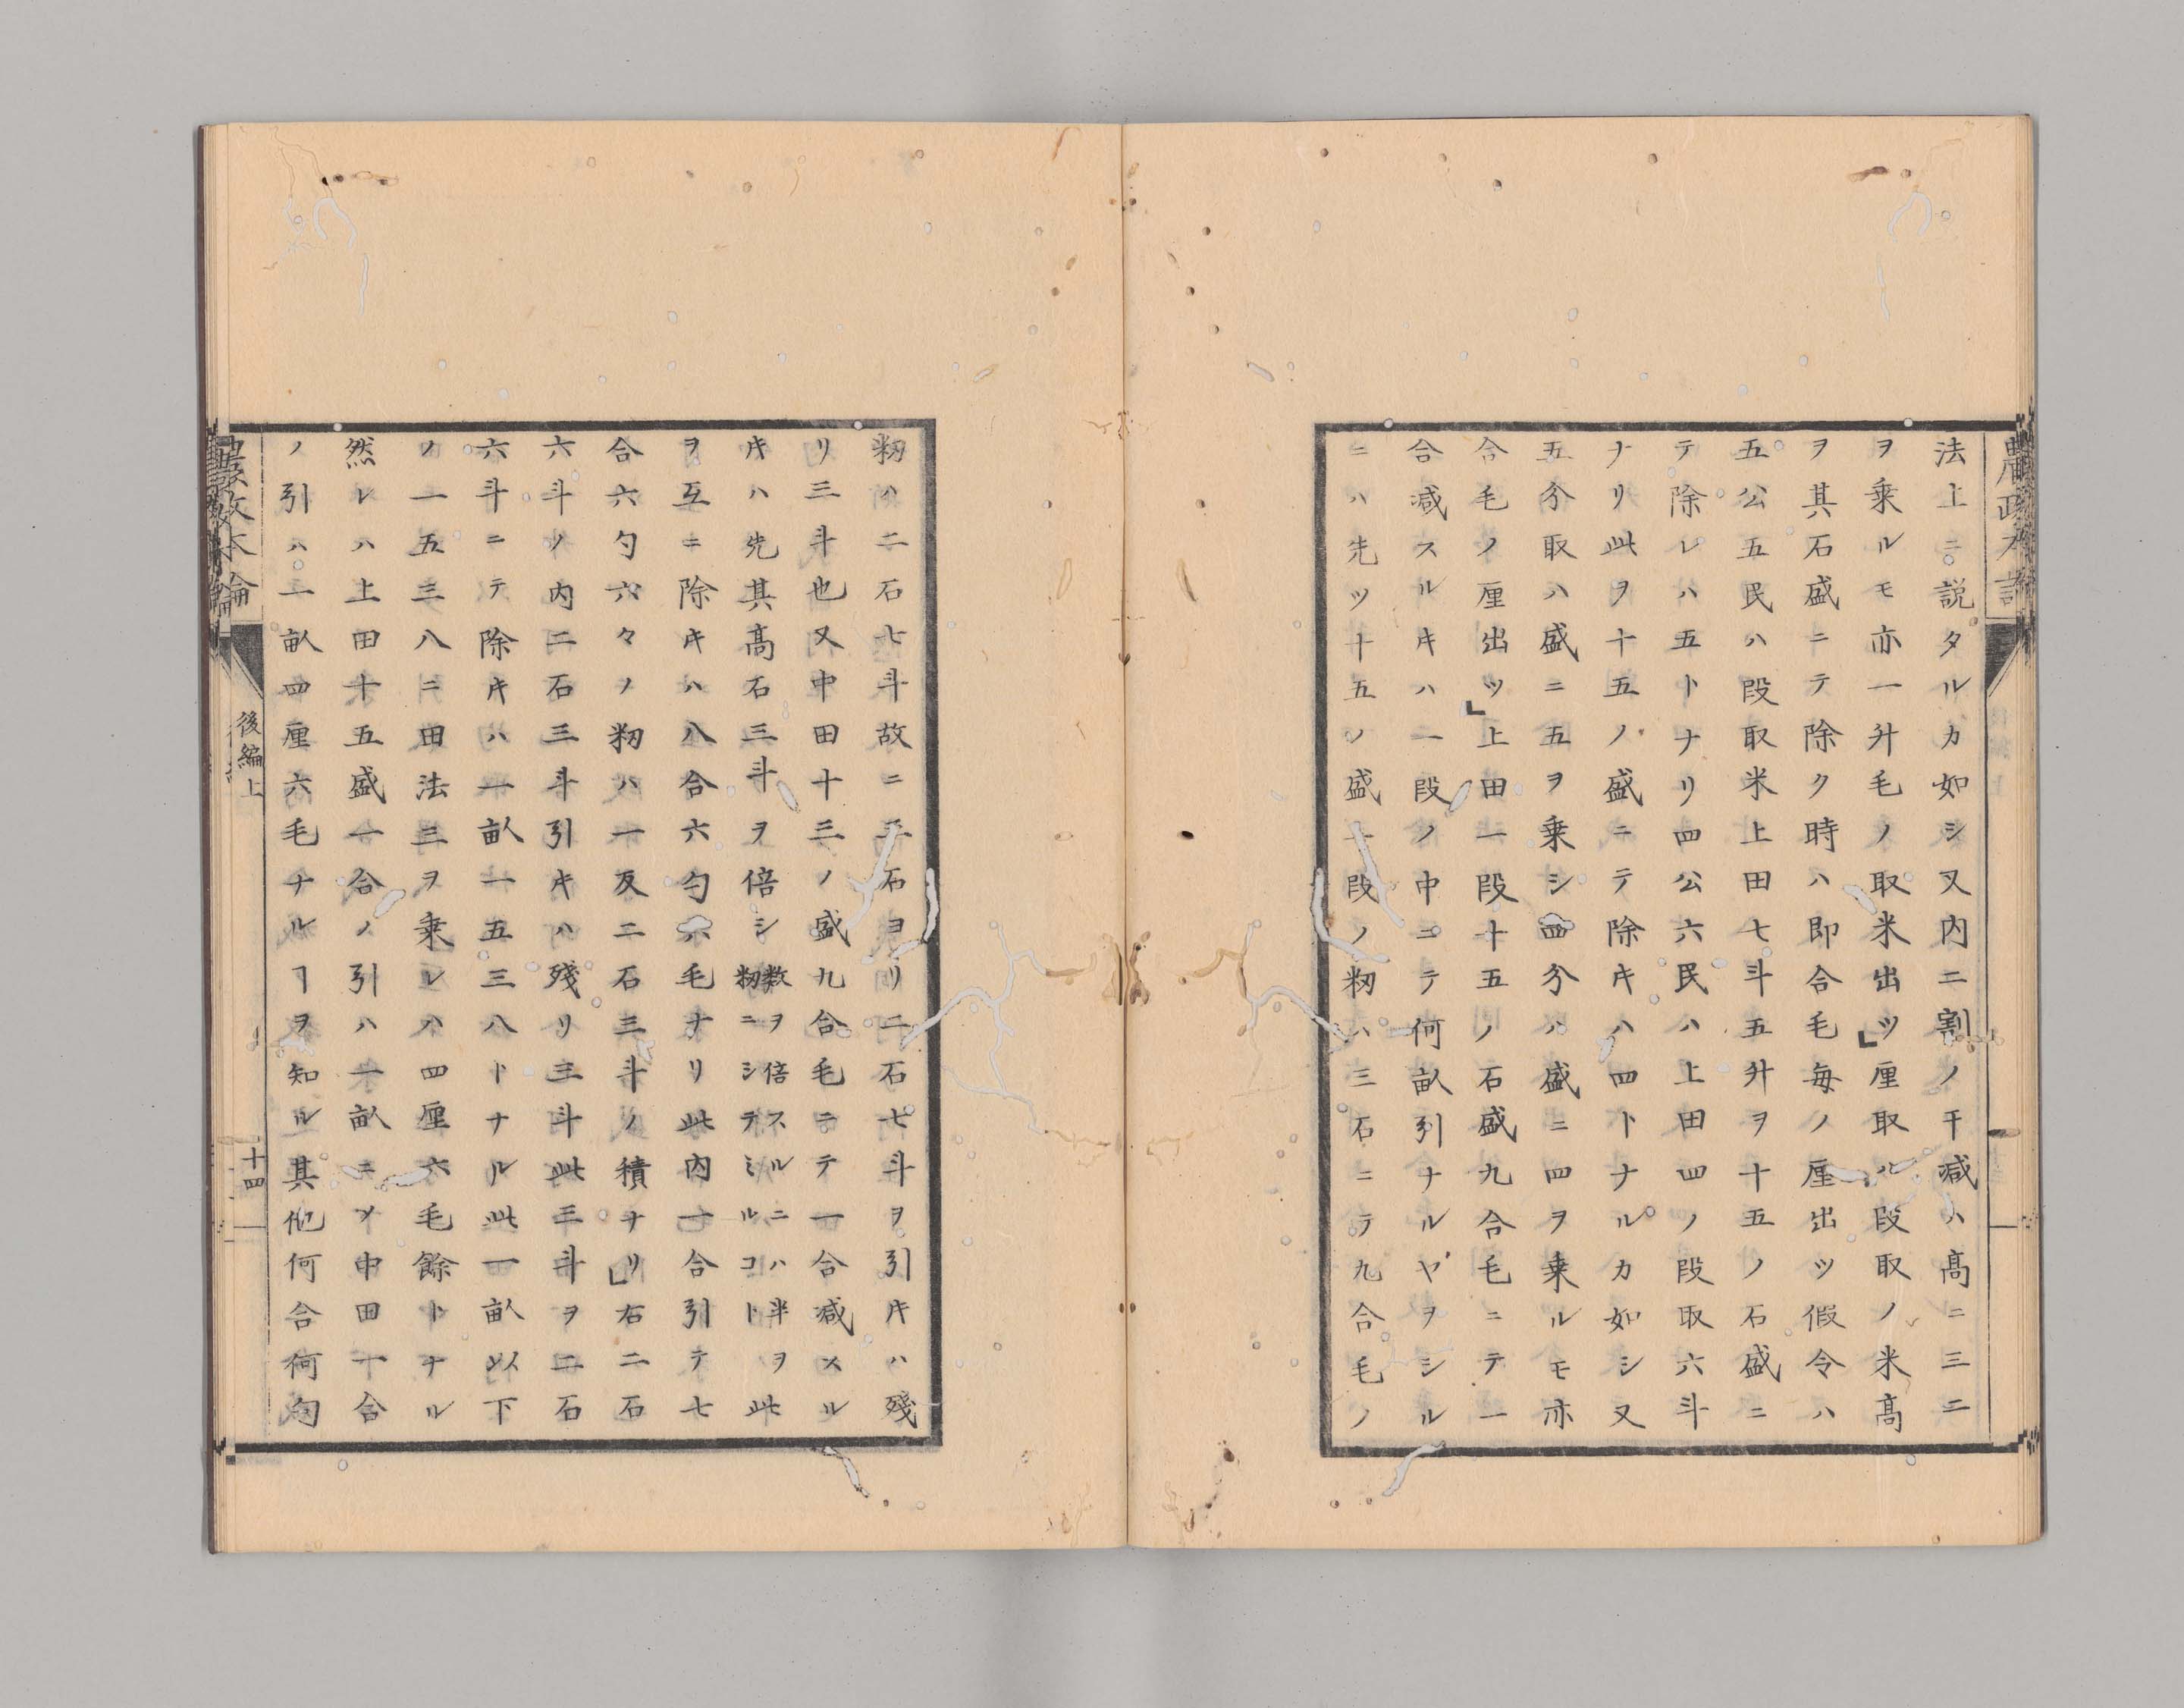 法上ニ説タルカ如シ又内二割ノ干减ハ髙ニ三ニ
ヲ乗ルモ亦一升毛ノ取米出ツ」厘取ハ段取ノ米髙
ヲ其石盛ニテ除ク時ハ即合毛毎ノ厘出ツ假令ハ
五公五民ハ段取米上田七斗五升ヲ十五ノ石盛ニ
テ除レハ五トナリ四公六民ハ上田四ノ段取六斗
ナリ此ヲ十五ノ盛ニテ除キハ四トナルカ如シ又
五分取ハ盛ニ五ヲ乗シ四分ハ盛ニ四ヲ乗ルモ亦
合毛ノ厘出ツ」上田一段十五ノ石盛九合毛ニテ一
合减スルキハ一段ノ中ニテ何畝引ナルヤヲシル
ニハ先ツ十五ノ盛一段ノ籾ハ三石ニテ九合毛ノ
籾ハ二石七斗故ニ三石ヨリ二石七斗ヲ引キハ殘
リ三斗也又中田十三ノ盛九合毛ニテ一合减スル
キハ先其髙石三斗ヲ倍シ
数ヲ倍スルニハ半ヲ
籾ニシテミルコト
此
ヲ互ニ除キハ八合六勺六毛ナリ此内一合引テ七
合六勺六々ノ籾ハ一反二石三斗ノ積ナリ」右二石
六斗ノ内二石三斗引キハ殘リ三斗此三斗ヲ二石
六斗ニテ除キハ一畝一五三八トナル此一畝以下
ノ一五三八ニ田法三ヲ乗レハ四厘六毛餘トナル
然レハ上田十五盛一合ノ引ハ一畝ニメ中田一合
ノ引ハ一畝四厘六毛ナルヿヲ知ル其他何合何勺
農政本論
後編上
十四